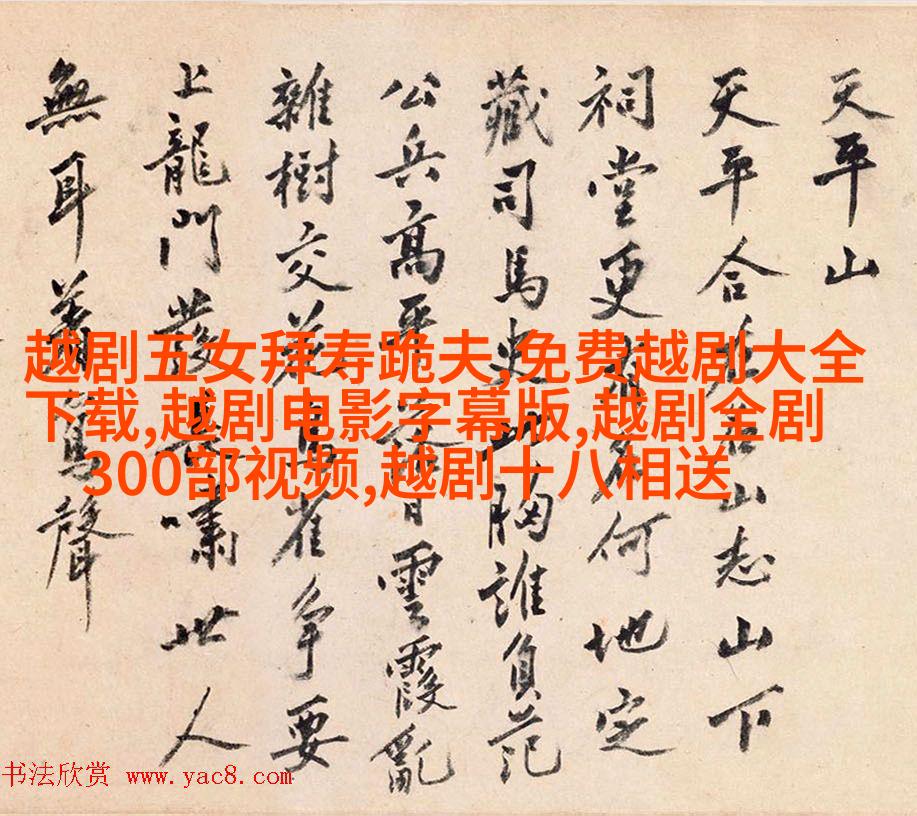 天平山
天平合山志山下
祠堂更何地定
藏司馬史胸誰負范
公兵高雲霞亂
雜樹交雀爭要
上龍門發嘯世人
無耳聲
越剧五女拜寿跪夫,免费越剧大全
下载,越剧电影字幕版,越剧全剧
300部视频,越剧十八相送
书法欣赏 www.yac8.com